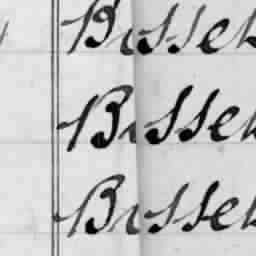 Bissek
Bissek
Bissek